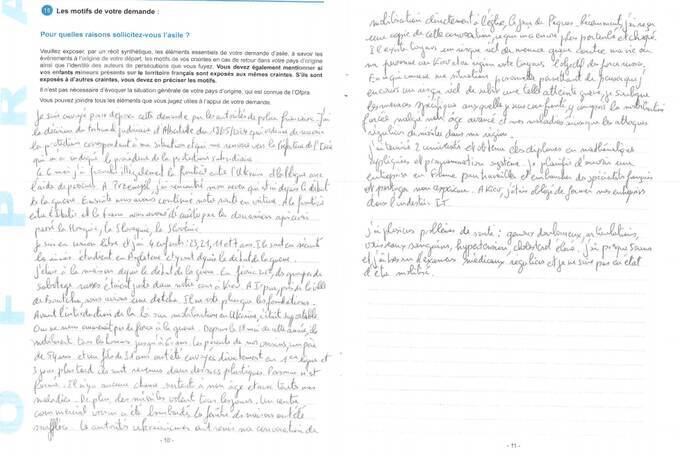 O F P R A
15 Les motifs de votre demande :
Pour quelles raisons sollicitez-vous l'asile ?
Veuillez exposer, par un récit synthétique, les éléments essentiels de votre demande d'asile, à savoir les
évènements à l'origine de votre départ, les motifs de vos craintes en cas de retour dans votre pays d'origine
ainsi que l'identité des auteurs de persécutions que vous fuyez. Vous devez également mentionner si
vos enfants mineurs présents sur le territoire français sont exposés aux mêmes craintes. S'ils sont
exposés à d'autres craintes, vous devez en préciser les motifs.
Il n'est pas nécessaire d'évoquer la situation générale de votre pays d'origine, qui est connue de l'Ofpra.
Vous pouvez joindre tous les éléments que vous jugez utiles à l'appui de votre demande.
Je suis envoyé pour déposer cette demande par les autorités de police française. J'ai
la décision du tribunal judiciaire d'Abbeville du 13/05/2024 qui ordonne de
la protection correspondant à ma situation et qui me renvoie vers la préfecture de l'Oise
qui m'a indiqué la procédure de la protection subsidiaire.
Le 6 mai j'ai franchi illégalement la frontière entre l'Ukraine et la Pologne avec
l'aide de passeur. A Przemysl, j'ai rencontré mon
de la guerre. Ensuite nous avons continué notre route en voiture. A la frontière
entre l'Italie et la France nous avons été arrêtés par les douaniers après avoir
passé la Hongrie, la Slovaquie, la Slovénie.
Je suis en union libre et j'ai 4 enfants : 23, 21, 11 et 7 ans. Ils sont en sécurité
les aînés étudient en Angleterre et y ont depuis le début de la guerre.
J'étais à la maison depuis le début de la guerre. En février 2022, des groupes de
sabotage russes étaient juste dans notre cour à Kiev. A Irpin, près de la ville
de Boutcha, nous avions une datcha. Il ne reste plus que les fondations.
Avant l'introduction de la loi sur mobilisation en Ukraine, c'était supportable
On ne nous emmenait pas de force à la guerre. Depuis le 18 mai de cette année, ils
mobilisent tous les hommes jusqu'à 60 ans. Les parents de nos voisins, un père
de 54 ans et un fils de 31 ans ont été envoyés directement en 1ère ligne et
3 jours plus tard ils sont revenus dans des sacs plastiques. Personne n'est
formé. Il n'y a aucune chance surtout à mon âge et avec toutes mes
maladies. De plus, des missiles volent tous les jours. Un centre
commercial voisin a été bombardé. Les fenêtres de maisons ont été
soufflées. Les autorités ukrainiennes ont remis ma convocation de
- 10 -
mobilisation directement à l'église, le jour de Pâques. Récemment, j'ai reçu
une copie de cette convocation, ce qui m'a envoyé par
Il existe toujours un risque réel de menace grave contre ma vie ou
ma personne car Kiev et sa région sont toujours l'objectif du force russe.
En ce qui concerne ma situation personnelle permettant de
encourir un risque réel de subir une telle atteinte grave, je souligne
les menaces spécifiques auxquelles je suis confronté, y compris la mobilisation
forcée malgré mon âge avancé et mes maladies ainsi que les attaques
régulières de missiles dans ma région.
J'ai terminé 2 universités et obtenu des diplômes en mathématiques
appliquées et programmation système. Je planifie d'ouvrir une
entreprise en France pour travailler et embaucher des spécialistes français
et partager mon expérience. A Kiev, j'étais obligé de fermer mes entreprises
dans l'industrie IT.
j'ai plusieurs problèmes de santé : genoux douloureux, articulations,
vaisseaux sanguins, hypertension, cholestérol élevé,
et j'ai besoin d'examens médicaux réguliers et je ne suis pas en état
d'être mobilisé.
- 11 -